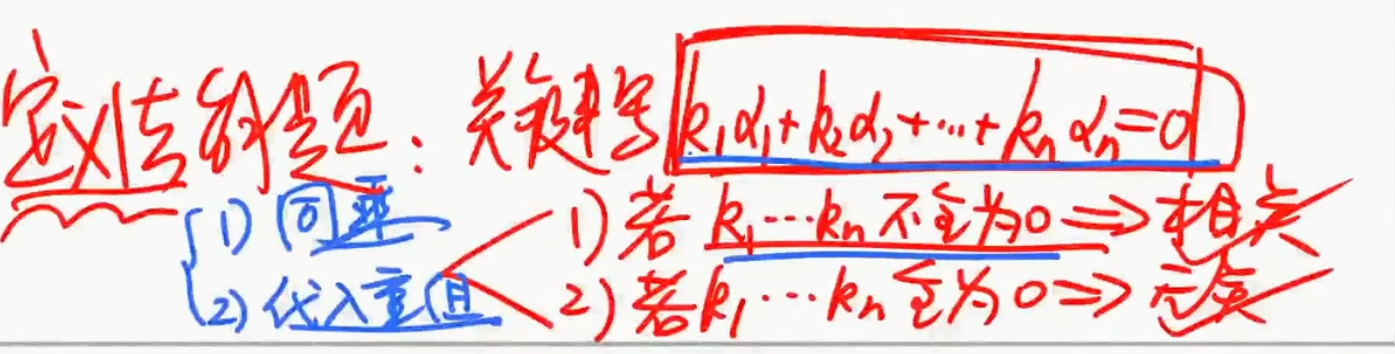 定义法解题：关键写 k₁α₁+k₂α₂+…+kₙαₙ=0
1) 同乘
2) 代入重组
1) 若 k₁…kₙ 不全为0 ⇒ 相关
2) 若 k₁…kₙ 全为0 ⇒ 无关